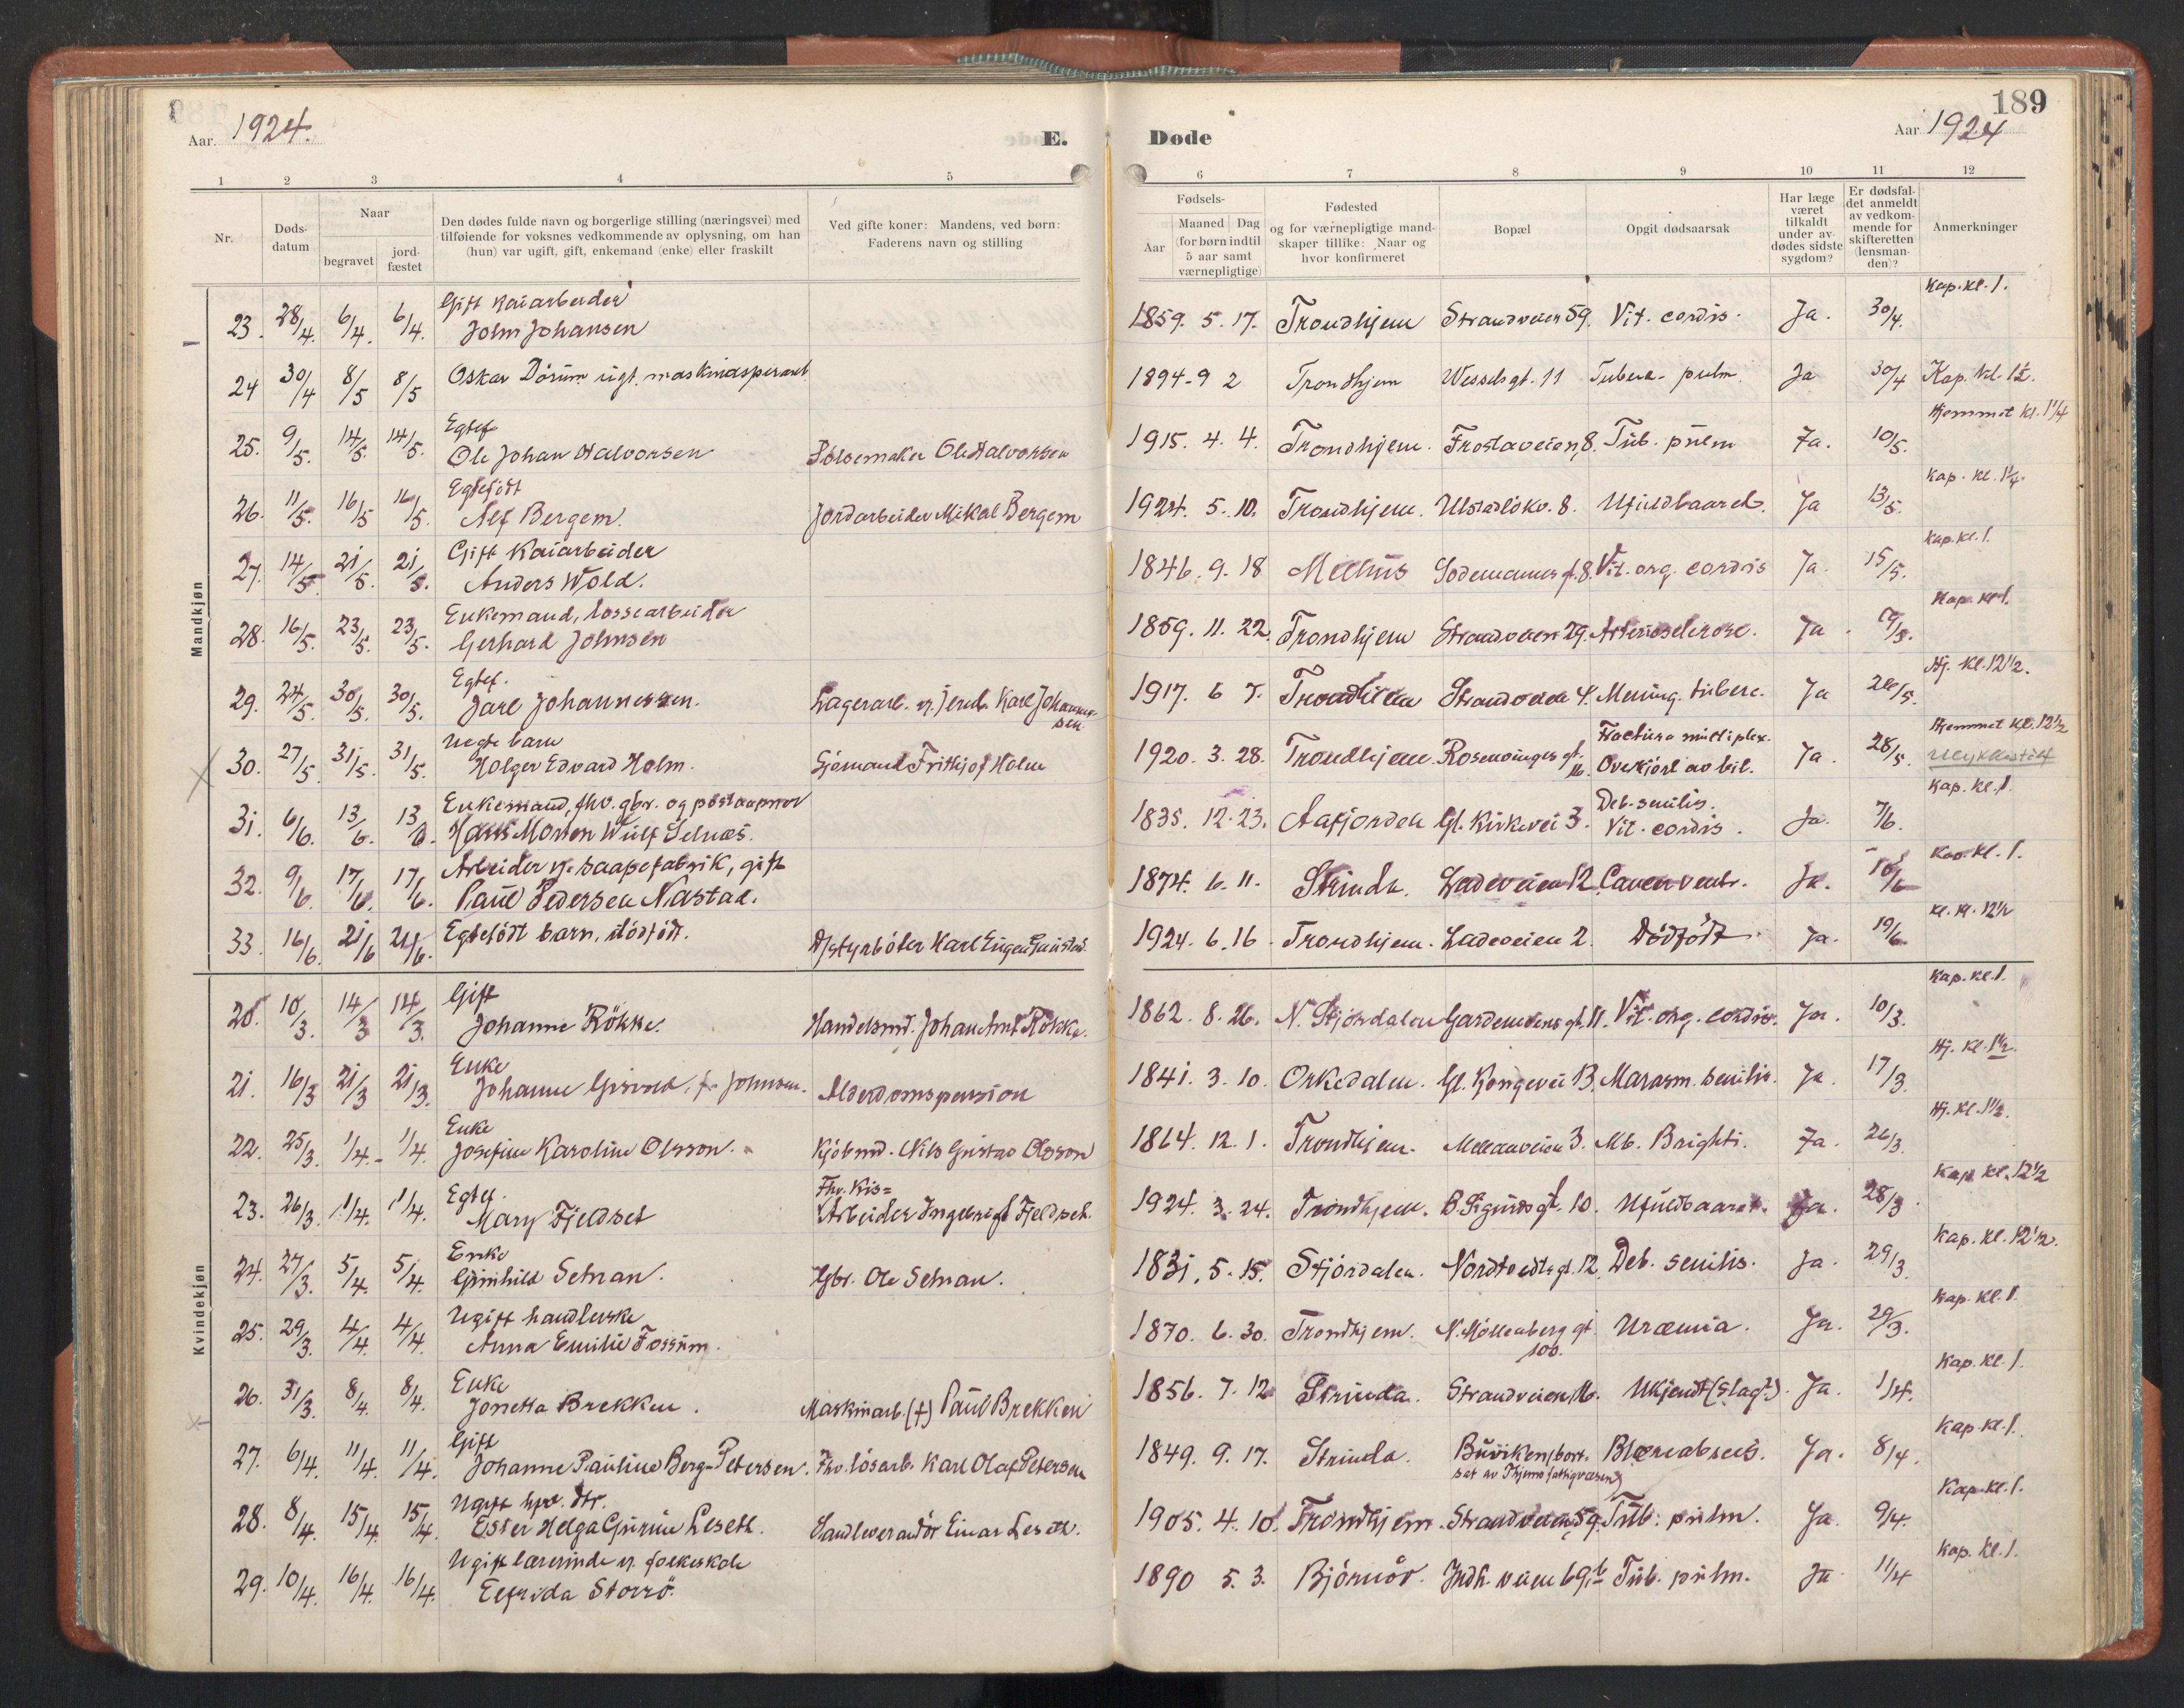 189
Aar. 1924. E. Døde Aar 1924
1 2 3 4 5 6 7 8 9 10 11 12
Nr.
Døds-
datum
Naar
begravet
jord-
fæstet
Den dødes fulde navn og borgerlige stilling (næringsvei) med
tilføiende for voksnes vedkommende av oplysning, om han
(hun) var ugift, gift, enkemand (enke) eller fraskilt
Ved gifte koner: Mandens, ved børn:
Faderens navn og stilling
Fødsels-
Aar
Maaned Dag
(for børn indtil
5 aar samt
værnepligtige)
Fødested
og for værnepligtige mand-
skaper tillike: Naar og
hvor konfirmeret
Bopæl
Opgit dødsaarsak
Har læge
været
tilkaldt
under av-
dødes sidste
sygdom?
Er dødsfal-
det anmeldt
av vedkom-
mende for
skifteretten
(lensman-
den)?
Anmerkninger
Mandkjøn
Gift Kaiarbeider Kap. kl. 1.
23. 28/4. 6/4. 6/4. John Johansen 1859. 5. 17. Trondhjem Strandveien 59. Vit. cordis. Ja. 30/4.
24 30/4 8/5 8/5 Oskar Dórum ugt. 1894-9 2 Trondhjem Wesselsgt. 11 Tuberc. pulm. Ja 30/4 Kap. kl. 1½.
Egtef. Hjemmet kl. 1¼
25. 9/5. 14/5. 14/5. Ole Johan Halvorsen Pölsemaker Ole Halvorsen 1915. 4. 4. Trondhjem. Frostaveien 8. Tub. pulm Ja. 10/5.
Egtefödt Kap. kl. 1¼.
26. 11/5. 16/5 16/5. Alf Bergem. Jordarbeider Mikal Bergem 1924. 5. 10. Trondhjem. Ulstadlökv. 8. Ufuldbaaret. Ja 13/5.
Gift Kaiarbeider Kap. kl. 1.
27. 14/5. 21/5. 21/5. Anders Wold. 1846. 9. 18 Melhus Sodemannsgt. 8. Vit. org. cordis Ja. 15/5.
Enkemand, lossearbeider Kap. kl. 1.
28. 16/5. 23/5. 23/5. Gerhard Johnsen 1859. 11. 22. Trondhjem Strandveien 29. Arteriosclerose. Ja.
Egtef. Hj. kl. 12½.
29. 24/5. 30/5. 30/5. Jarl Johannessen. Lagerarb. v. Jernb. Karl Johannes-
sen 1917. 6 7. Trondhjem Strandveien 4. Mening. tuberc. Ja 26/5.
Uegte barn Fractura multiplex. Hjemmet kl. 12½
30. 27/5 31/5. 31/5. Holger Edvard Holm. Sjömand Frithjof Holm 1920. 3. 28. Trondhjem. Rosenvinges gt. 16. Overkjört av bil. Ja. 28/5. Ulykkestilf
Enkemand, fhv. gbr. og postaapner Deb. senilis. Kap. kl. 1.
31. 6/6. 13/6. 13/6. Hans Morten Wulf Selnæs. 1835. 12. 23. Aafjorden Gl. Kirkevei 3. Vit. cordis. Ja. 7/6.
Arbeider v. saapefabrik, gift Kap. kl. 1.
32. 9/6. 17/6. 17/6. Paul Pedersen Nastad. 1874. 6. 11. Strinda. Ladeveien 12. Cancer ventr. Ja. 10/6
33. 16/6. 21/6 21/6. Egtefödt barn, dödfödt. Karl Eugen 1924. 6. 16. Trondhjem. Ladeveien 2. Dödfödt Ja. 19/6. kl. 12½
Kvindekjøn
Gift Kap. kl. 1.
20. 10/3. 14/3 14/3. Johanne Rökke. Handelsmd. Johan Arnt Rökke. 1862. 8. 26. N. Stjördalen Gardemoens gt. 11. Vit. org. cordis. Ja. 10/3.
Enke Hj. kl. 1½.
21. 16/3 21/3 21/3. Johanne f. Johnsen. Alderdomspension 1841. 3. 10. Orkedalen. Gl. Kongevei 13. Marasm. senilis. Ja. 17/3.
Enke Hj. kl. 1½.
22. 25/3. 1/4. 1/4. Josefine Karoline Olsson. Kjöbmd. Nils Gustav Olsson 1864. 12. 1. Trondhjem. Mellemveien 3. Mb. Brighti. Ja. 26/3.
Egtef. Fhv. Kis= Kap. kl. 12½
23. 26/3. 1/4. 1/4. Mary Fjeldset Arbeider Ingebrigt Fjeldset. 1924. 3. 24. Trondhjem. B. Sigurdsgt. 10. Ufuldbaaret. Ja. 28/3.
Enke Kap. kl. 12½.
24. 27/3. 5/4. 5/4. Gunhild Setran. Gbr. Ole Setran. 1831. 5. 15. Stjördalen. Nordtvedtsgt. 12. Deb. senilis. Ja. 29/3.
Ugift handlerske Kap. kl. 1.
25. 29/3. 4/4. 4/4. Anna Emilie Fossum. 1870. 6. 30. Trondhjem. N. Möllenberg gt. 100. Uræmia. Ja. 29/3.
Enke Kap. kl. 1.
26. 31/3. 8/4. 8/4. Jonetta Brekken. Maskinarb. (+) Paul Brekken 1856. 7. 12 Strinda. Strandveien 16. Ukjendt (Slagt.). Ja. 1/4.
Gift Kap. kl. 1.
27. 6/4. 11/4. 11/4. Johanne Pauline Berg-Petersen. Fhv. lösarb. Karl Olaf Petersen 1849. 9. 17. Strinda. Buviken (bort-
sat av Thjems fattigvæsen) Ja. 8/4.
Ugift hpr. dtr. Kap. kl. 1.
28. 8/4. 15/4. 15/4. Ester Helga Gurine Leseth. Sandleverandör Einar Leseth. 1905. 4. 10. Trondhjem. Strandveien 59. Tub. pulm. Ja. 9/4.
Ugift lærerinde v. folkeskole Kap. kl. 1.
29. 10/4. 16/4. 16/4. Elfrida Storrö. 1890 5. 3. Björnör. Indh. veien 69b Tub. pulm. Ja 11/4